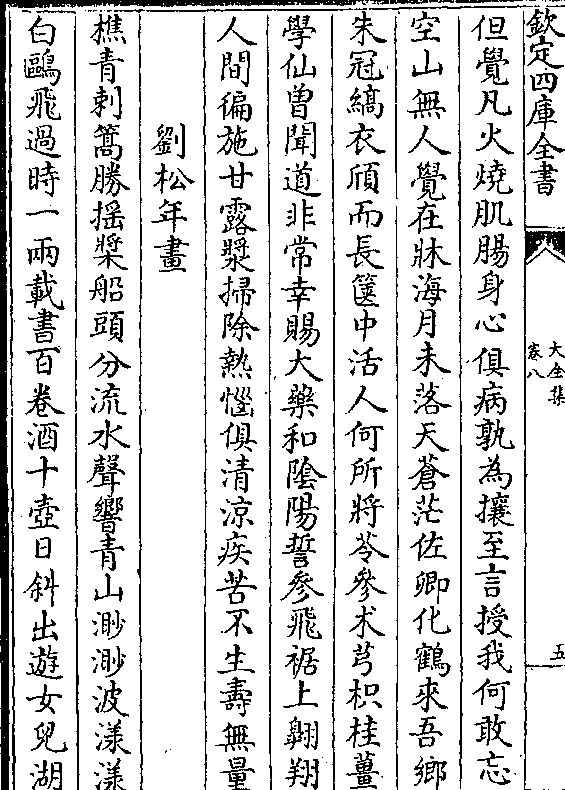 欽定四庫全書
大全集
卷八
五
但覺凡火燒肌腸身心俱病孰為攘至言授我何敢忘
空山無人覺在牀海月未落天蒼茫佐卿化鶴來吾鄉
朱冠縞衣頎而長篋中活人何所將苓參术芎枳桂薑
學仙曾聞道非常幸賜大藥和陰陽誓參飛裾上翺翔
人間徧施甘露漿掃除熱惱俱清涼疾苦不生壽無量
劉松年畫
樵青刺篙勝揺槳船頭分流水聲響青山渺渺波漾漾
白鷗飛過時一兩載書百卷酒十壺日斜出遊女兒湖